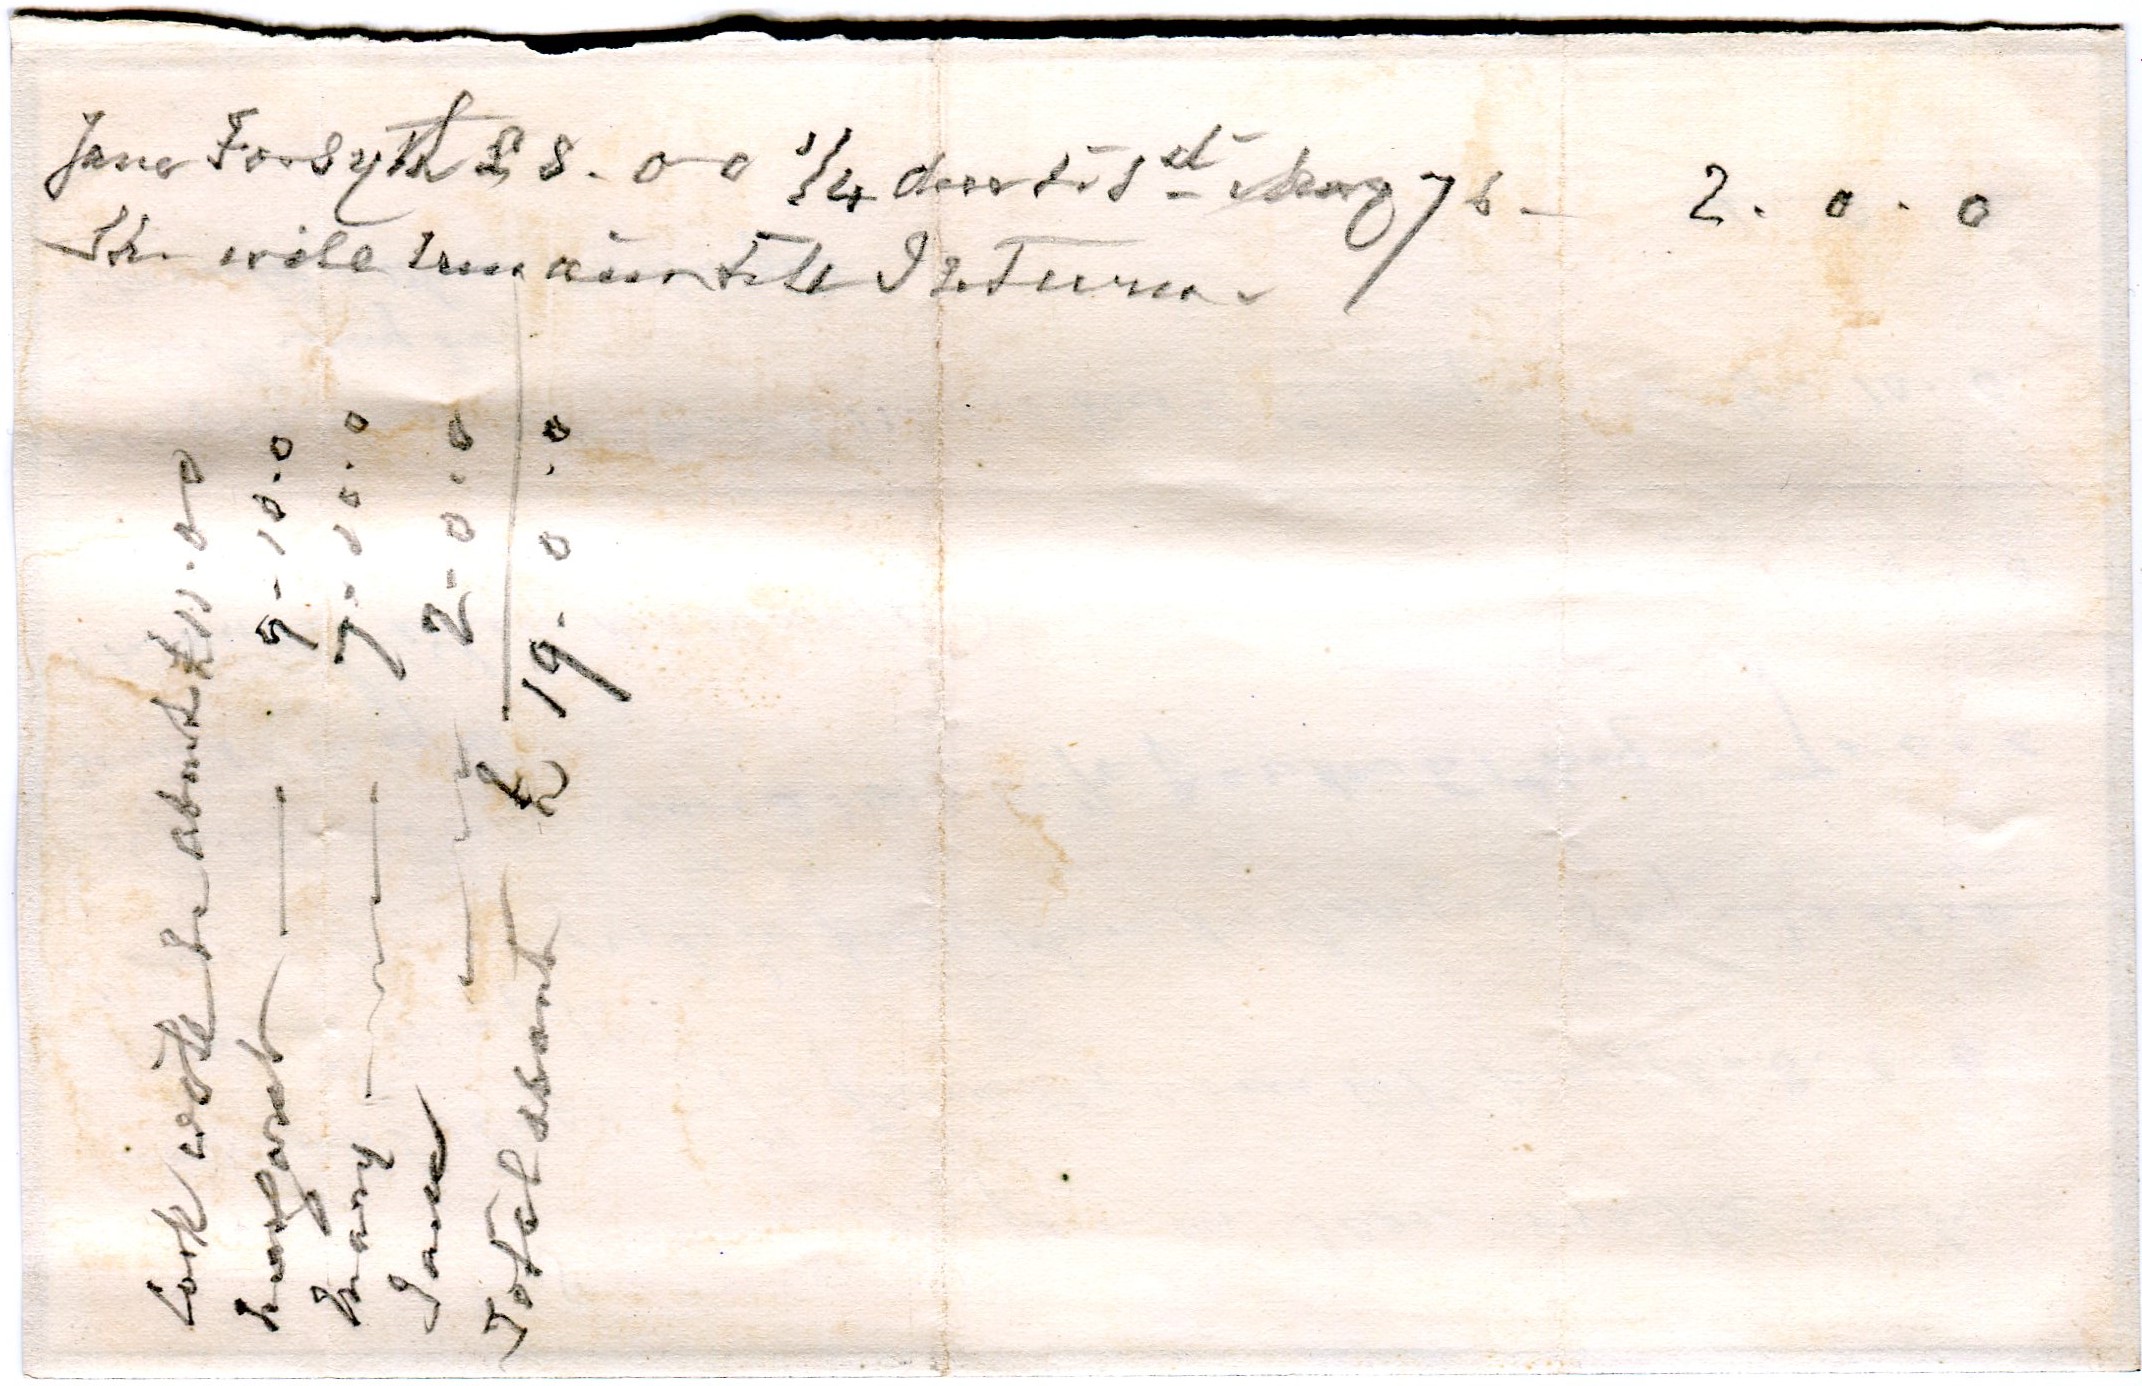 Jane Forsyth £8. 0-0 1/4 due to 1st May 76 - 2. 0. 0
She will remain till I return.
Cook will be about £11.0.0
Margaret — 7-10.0
Mary — 7.10.0
Jane — 2-0.0
Total about £ 19. 0. 0